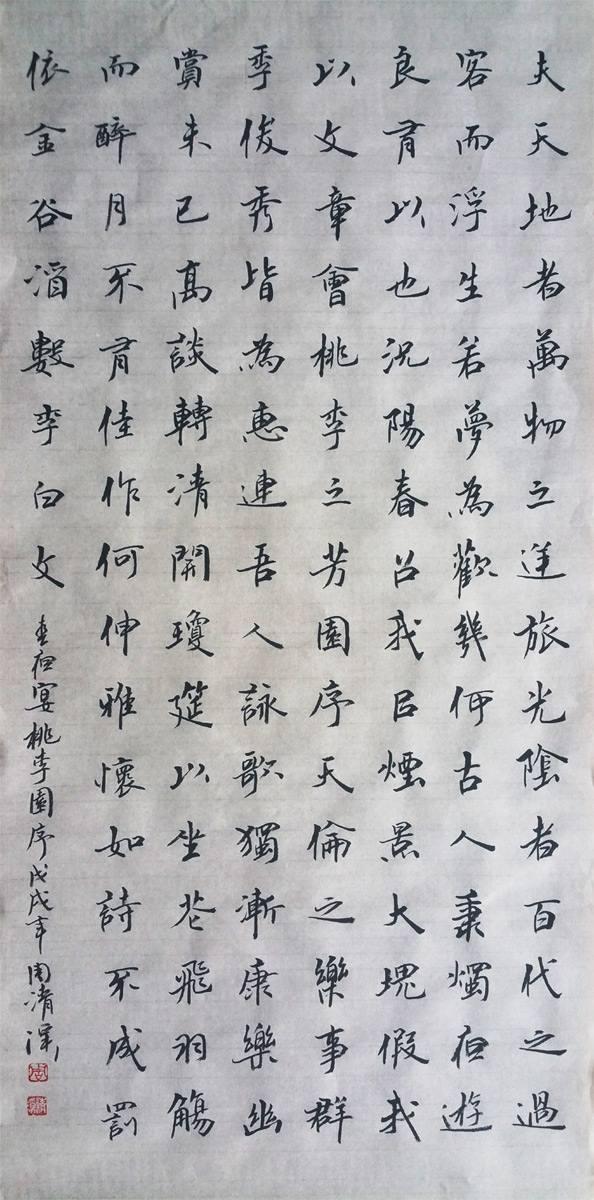 夫天地者萬物之逆旅光陰者百代之過
客而浮生若夢為歡幾何古人秉燭夜遊
良有以也況陽春召我㠯煙景大塊假我
以文章會桃李之芳園序天倫之樂事群
季俊秀皆為惠連吾人詠歌獨漸康樂幽
賞未已高談轉清開瓊筵以坐花飛羽觴
而醉月不有佳作何伸雅懷如詩不成罰
依金谷酒數李白文
春夜宴桃李園序戊戌年周清